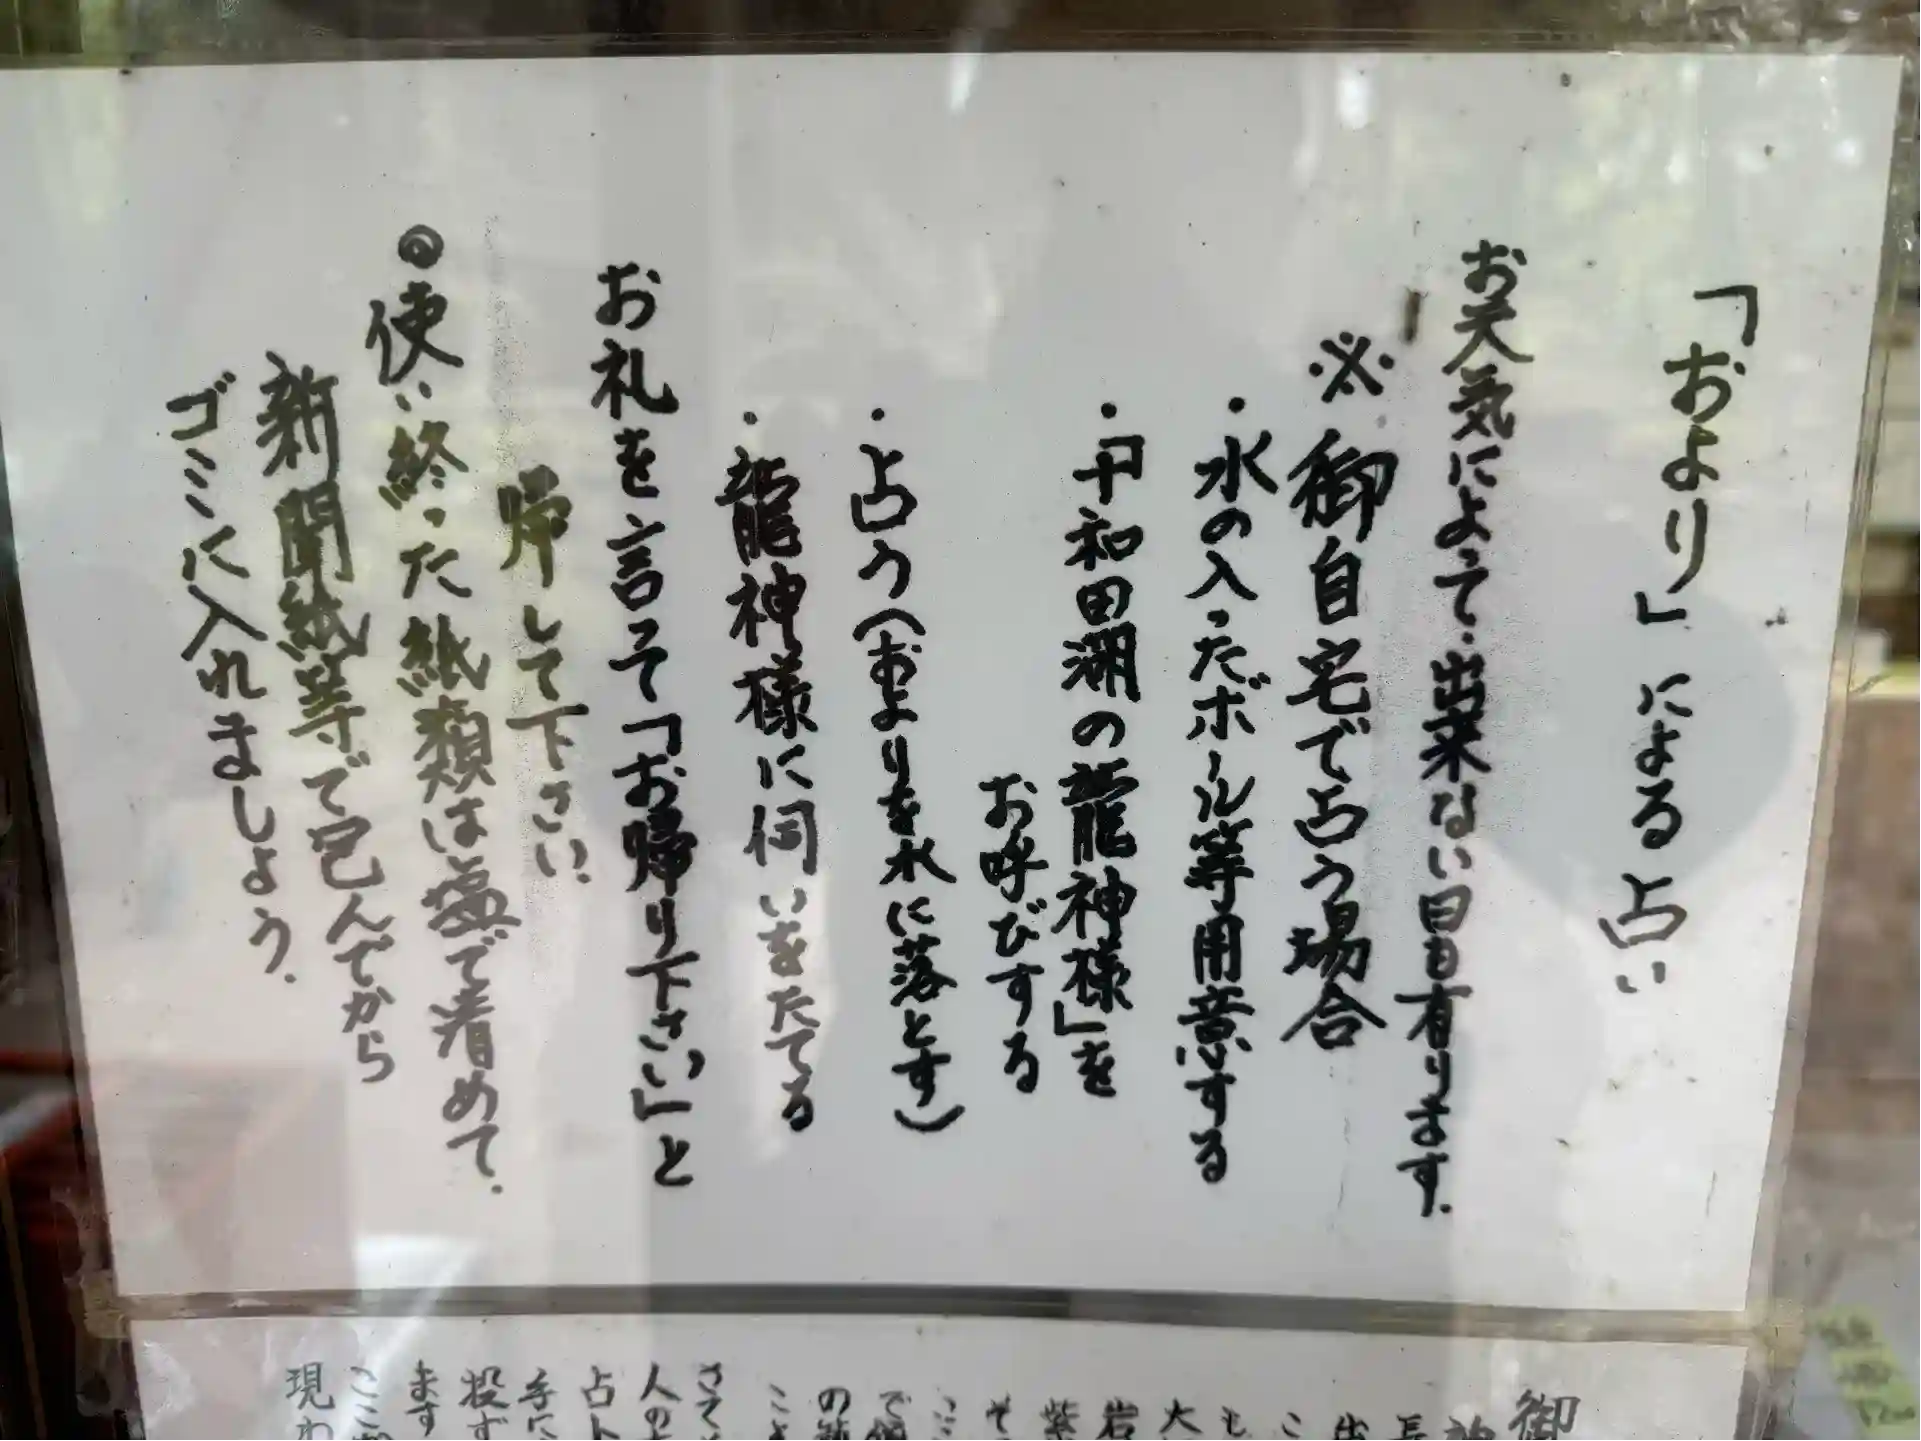 「およリ」による占い
お天気によって・出来ない日も有ります.
※御自宅で占う場合
・水の入ったボール等用意する
・「十和田湖の龍神様」を
お呼びする
・占う(およりを水に落とす)
・龍神様に伺いをたてる
お礼を言って「お帰り下さい」と
帰して下さい.
◎使い終った紙類は塩で清めて.
新聞紙等で包んでから
ゴミに入れましょう.
御
長
出
こ
も
大
岩
紫
そ
の
さて
人の
占
手に
投ず
ます
ここ
現わ